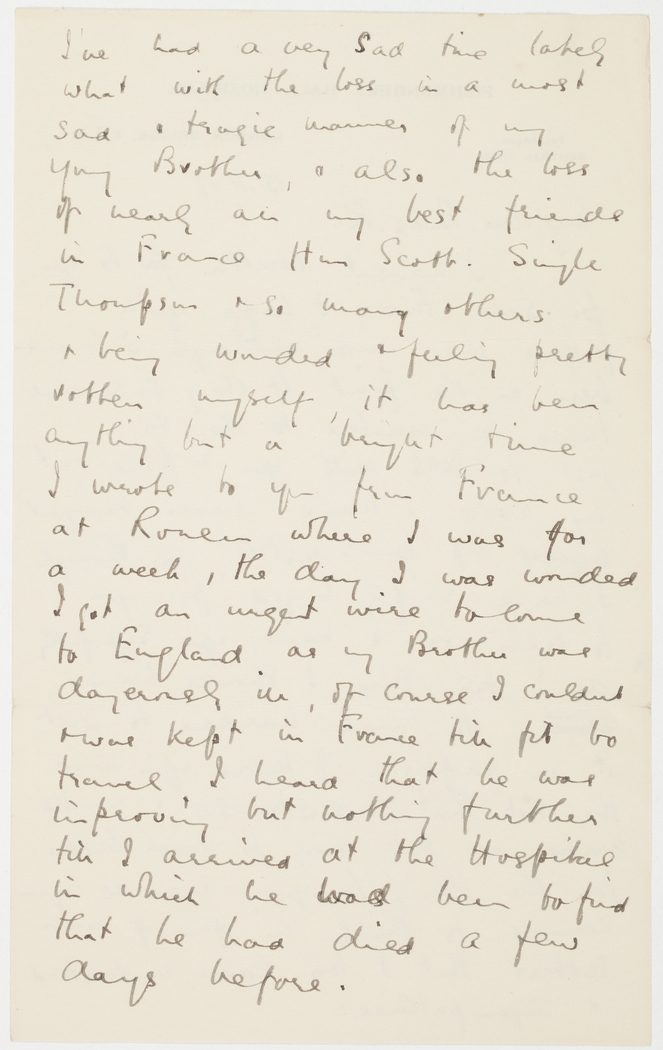 I've had a very sad time lately
what with the loss in a most
sad & tragic manner of my
young Brother, & also the loss
of nearly all my best friends
in France Scott. Single
Thompson & so many others
& being wounded & feeling pretty
rotten myself, it has been
anything but a bright time
I wrote to you from France
at Rouen where I was for
a week, the day I was wounded
I got an urgent wire to come
to England as my Brother was
dangerously ill, of course I couldnt
& was kept in France till fit to
travel I heard that he was
improving but nothing further
till I arrived at the Hospital
in which he had been to find
that he had died a few
days before.